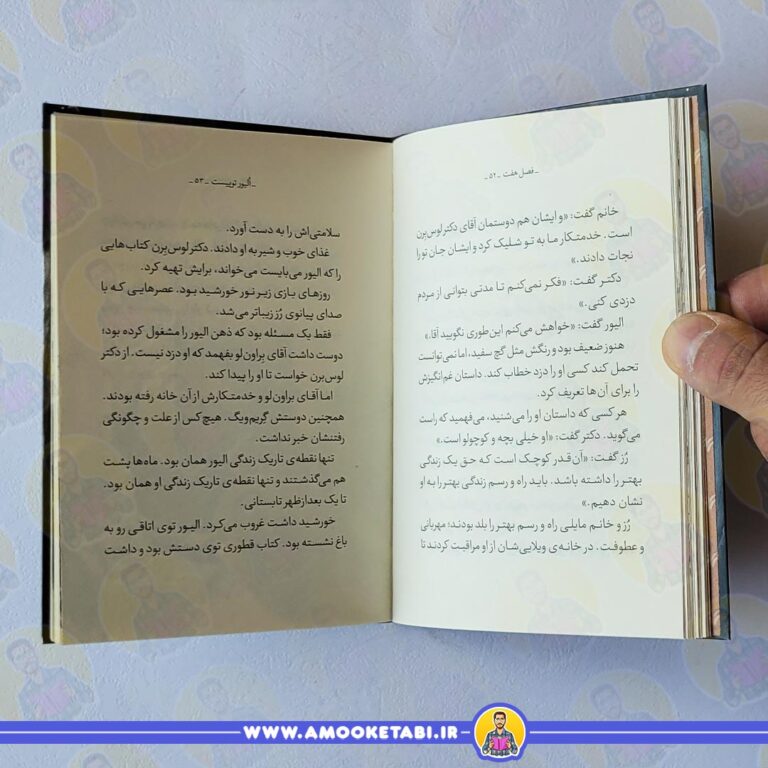 ـ فصل هفت ـ ۵۲ ـ
خانم گفت: «و ایشان هم دوستمان آقای دکتر لوس‌بِرن
است. خدمتکار ما به تو شلیک کرد و ایشان جان تو را
نجات دادند.»
دکتر گفت: «فکر نمی‌کنم تا مدتی بتوانی از مردم
دزدی کنی.»
الیور گفت: «خواهش می‌کنم این‌طوری نگویید آقا.»
هنوز ضعیف بود و رنگش مثل گچ سفید، اما نمی‌توانست
تحمل کند کسی او را دزد خطاب کند. داستان غم‌انگیزش
را برای آن‌ها تعریف کرد.
هر کسی که داستان او را می‌شنید، می‌فهمید که راست
می‌گوید. دکتر گفت: «او خیلی بچه و کوچولو است.»
رُز گفت: «آن‌قدر کوچک است که حق یک زندگی
بهتر را داشته باشد. باید راه و رسم زندگی بهتر را به او
نشان دهیم.»
رُز و خانم مایلی راه و رسم بهتر را بلد بودند؛ مهربانی
و عطوفت. در خانه‌ی ویلایی‌شان از او مراقبت کردند تا
ـ اُلیور توییست ـ ۵۳ ـ
سلامتی‌اش را به دست آورد.
غذای خوب و شیر به او دادند. دکتر لوس‌بِرن کتاب‌هایی
را که الیور می‌بایست می‌خواند، برایش تهیه کرد.
روزهای بازی زیر نور خورشید بود. عصرهایی که با
صدای پیانوی رُز زیباتر می‌شد.
فقط یک مسئله بود که ذهن الیور را مشغول کرده بود؛
دوست داشت آقای براون‌لو بفهمد که او دزد نیست. از دکتر
لوس‌برن خواست تا او را پیدا کند.
اما آقای براون‌لو و خدمتکارش از آن خانه رفته بودند.
همچنین دوستش گریم‌ویگ. هیچ‌کس از علت و چگونگی
رفتنشان خبر نداشت.
تنها نقطه‌ی تاریک زندگی الیور همان بود. ماه‌ها پشت
هم می‌گذشتند و تنها نقطه‌ی تاریک زندگی او همان بود.
تا یک بعدازظهر تابستانی.
خورشید داشت غروب می‌کرد. الیور توی اتاقی رو به
باغ نشسته بود. کتاب قطوری توی دستش بود و داشت
WWW.AMOOKETABI.IR